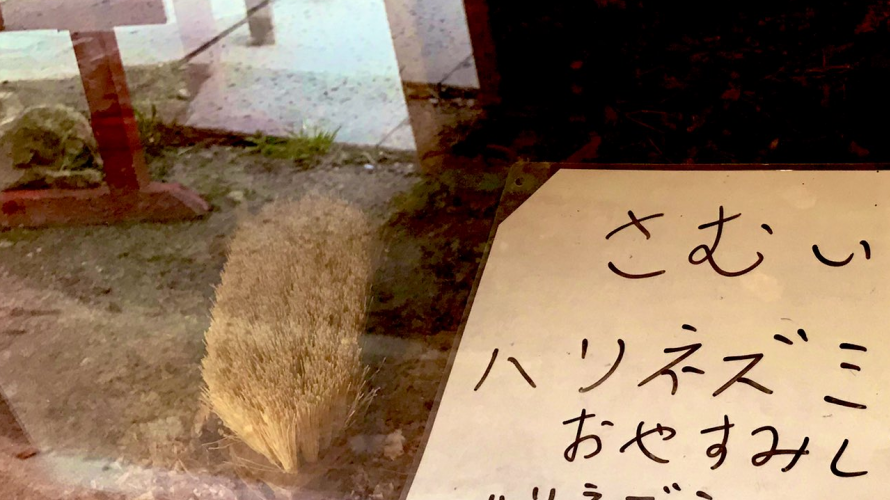 さむい
ハリネズミ
おやすみし